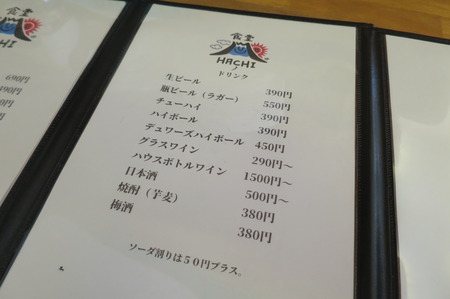 食堂
HACHI
ドリンク
生ビール 390円
瓶ビール（ラガー） 550円
チューハイ 390円
ハイボール 390円
デュワーズハイボール 450円
グラスワイン 290円～
ハウスボトルワイン 1500円～
日本酒 500円～
焼酎（芋麦） 380円
梅酒 380円
ソーダ割りは５０円プラス。
食堂
HI
690円
490円
円
円